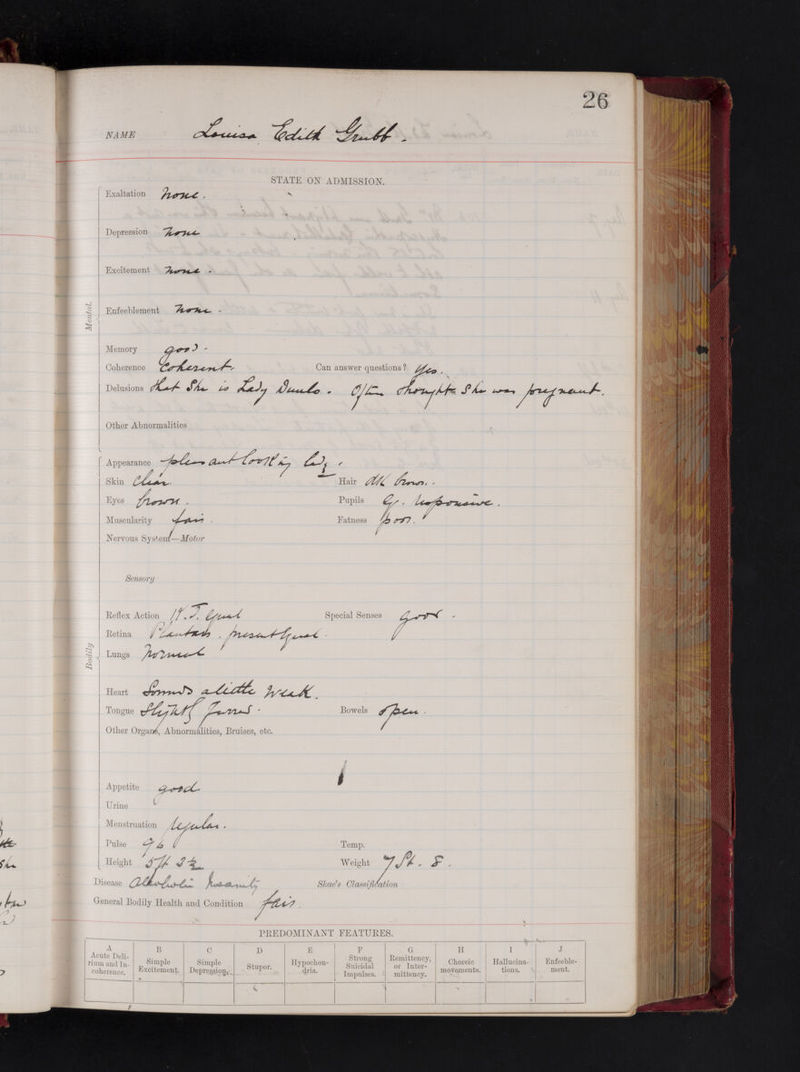 26
NAME Louisa Edith Grubb.
STATE ON ADMISSION.
Mental.
Exaltation none.
Depression none
Excitement none.
Enfeeblement none.
Memory good.
Coherence Coherent. Can answer questions? yes.
Delusions that She is Lady Dunlo. Often thought She was pregnant.
Other Abnormalities
Bodily
Appearance pleasant looking lady.
Skin Clear. Hair dk brown.
Eyes brown. Pupils Eq. responsive.
Muscularity fair. Fatness poor.
Nervous System—Motor
Sensory
Reflex Action K.J. Equal Special Senses good.
Retina Plantars. present Equal.
Lungs Normal
Heart Sounds a little Weak.
Tongue Slightly furred. Bowels open.
Other Organs, Abnormalities, Bruises, etc.
Appetite good
Urine
Menstruation regular.
Pulse 96 Temp.
Height 5ft 3½ Weight 7 St. 8.
Disease Alcoholic Insanity Skae's Classification
General Bodily Health and Condition fair.
PREDOMINANT FEATURES.
A B C D E F G H I J
Acute Delirium and Incoherence. Simple Excitement. Simple Depression. Stupor. Hypochondria. Strong Suicidal Impulses. Remittency, or Intermittency. Choreic movements. Hallucinations. Enfeeblement.